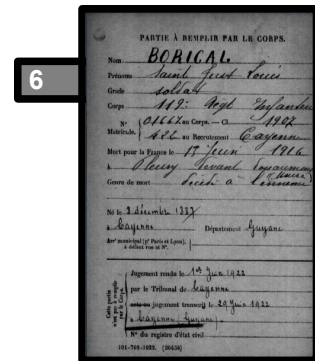 6
PARTIE À REMPLIR PAR LE CORPS.
Nom BORICAL
Prénoms Saint Just Louis
Grade soldat
Corps 119e Regt Infanterie
N° 01667 au Corps. — Cl 1907
Matricule. 422 au Recrutement Cayenne
Mort pour la France le 1916
à Fleury devant
Genre de mort à l'ennemi
Né le 9 décembre 1887
à Cayenne Département Guyane
Arrt municipal (pr Paris et Lyon),
à défaut rue et N°.
Cette partie
n'est pas à remplir
par le Corps.
Jugement rendu le 1er Juin 1922
par le Tribunal de Cayenne
acte ou jugement transcrit le 29 Juin 1922
à Cayenne (Guyane)
N° du registre d'état civil
101-708-1922. [26434]